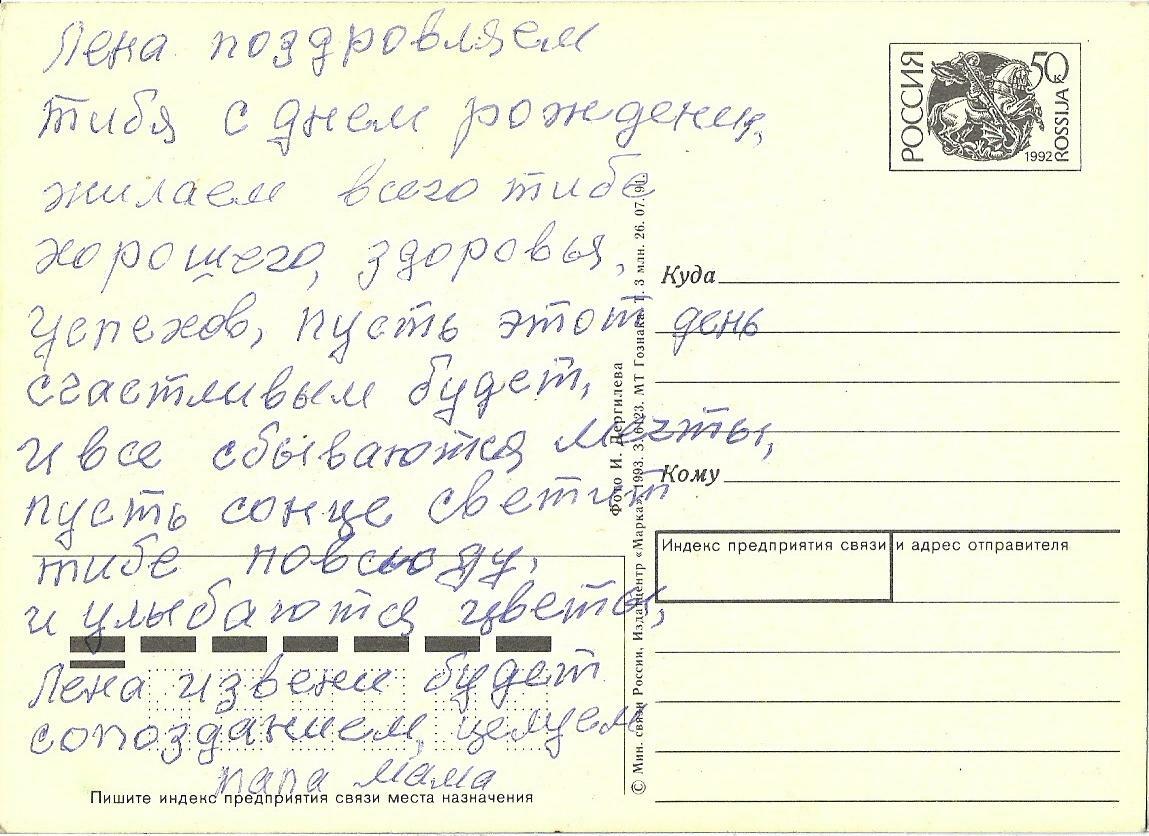 Лена поздровляем
тибя с днем рождения,
жилаем всего тибе
хорошего, здоровья,
успехов, пусть этот день
счастливым будет,
и все сбываются мечты,
пусть сонце светит
тибе повсюду,
и улыбаются цветы,
Лена извени будет
сопозданием, целуем
папа мама
РОССИЯ
50 к
1992
ROSSIJA
Куда
Кому
Индекс предприятия связи и адрес отправителя
Пишите индекс предприятия связи места назначения
Фото И. Дергилева
© Мин. связи России, Издатцентр «Марка», 1993. З. 6123. МТ Гознака. Т. 3 млн. 26. 07. 91